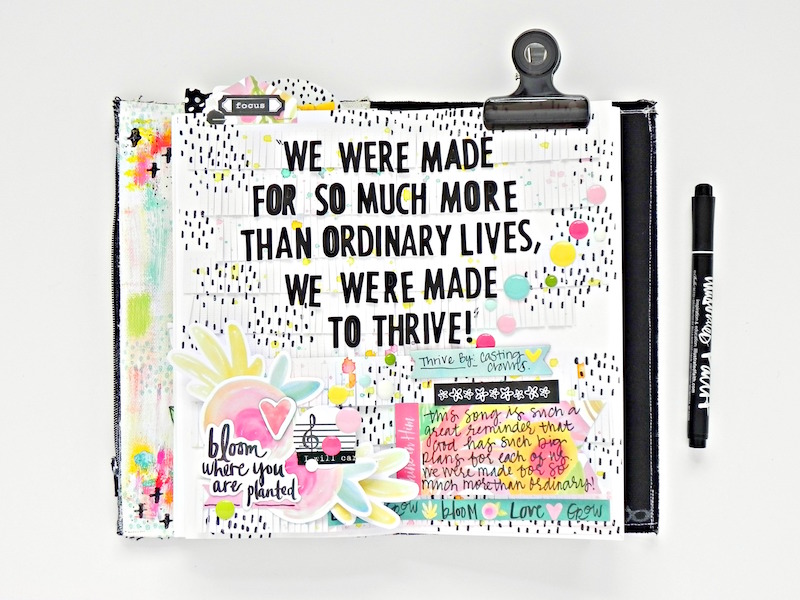 focus
"WE WERE MADE
FOR SO MUCH MORE
THAN ORDINARY LIVES,
WE WERE MADE
TO THRIVE!"
Thrive By Casting
Crowns.
this song is such a
great reminder that
God has such big
plans for each of us.
we were made for so
much more than ordinary!
bloom
where you
are planted
I will
GROW bloom Love GROW
illustrated Faith